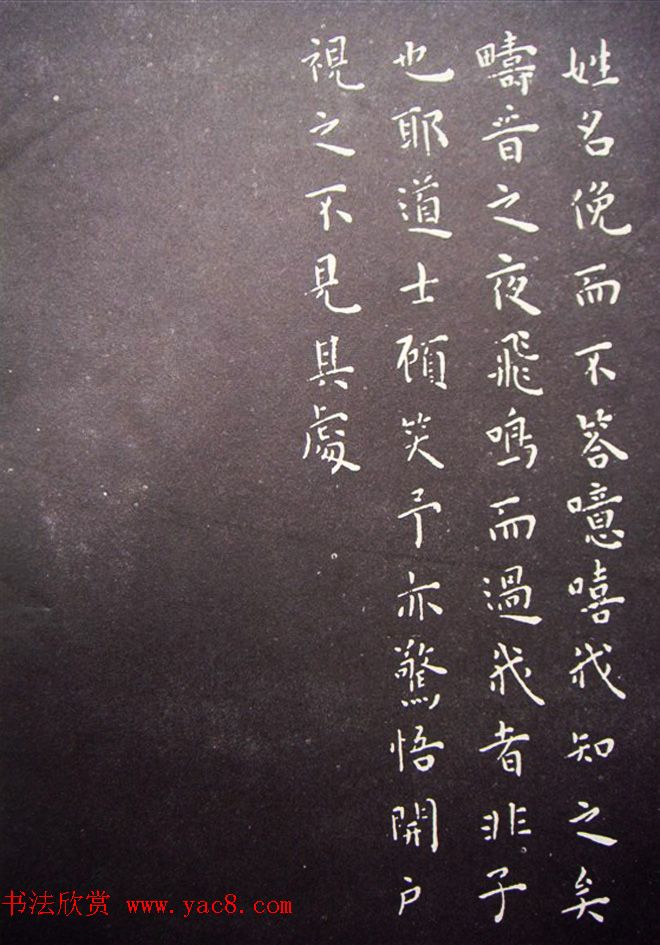 姓名俛而不答噫嘻我知之矣
疇昔之夜飛鳴而過我者非子
也耶道士顧笑予亦驚悟開戶
視之不見其處
书法欣赏 www.yac8.com